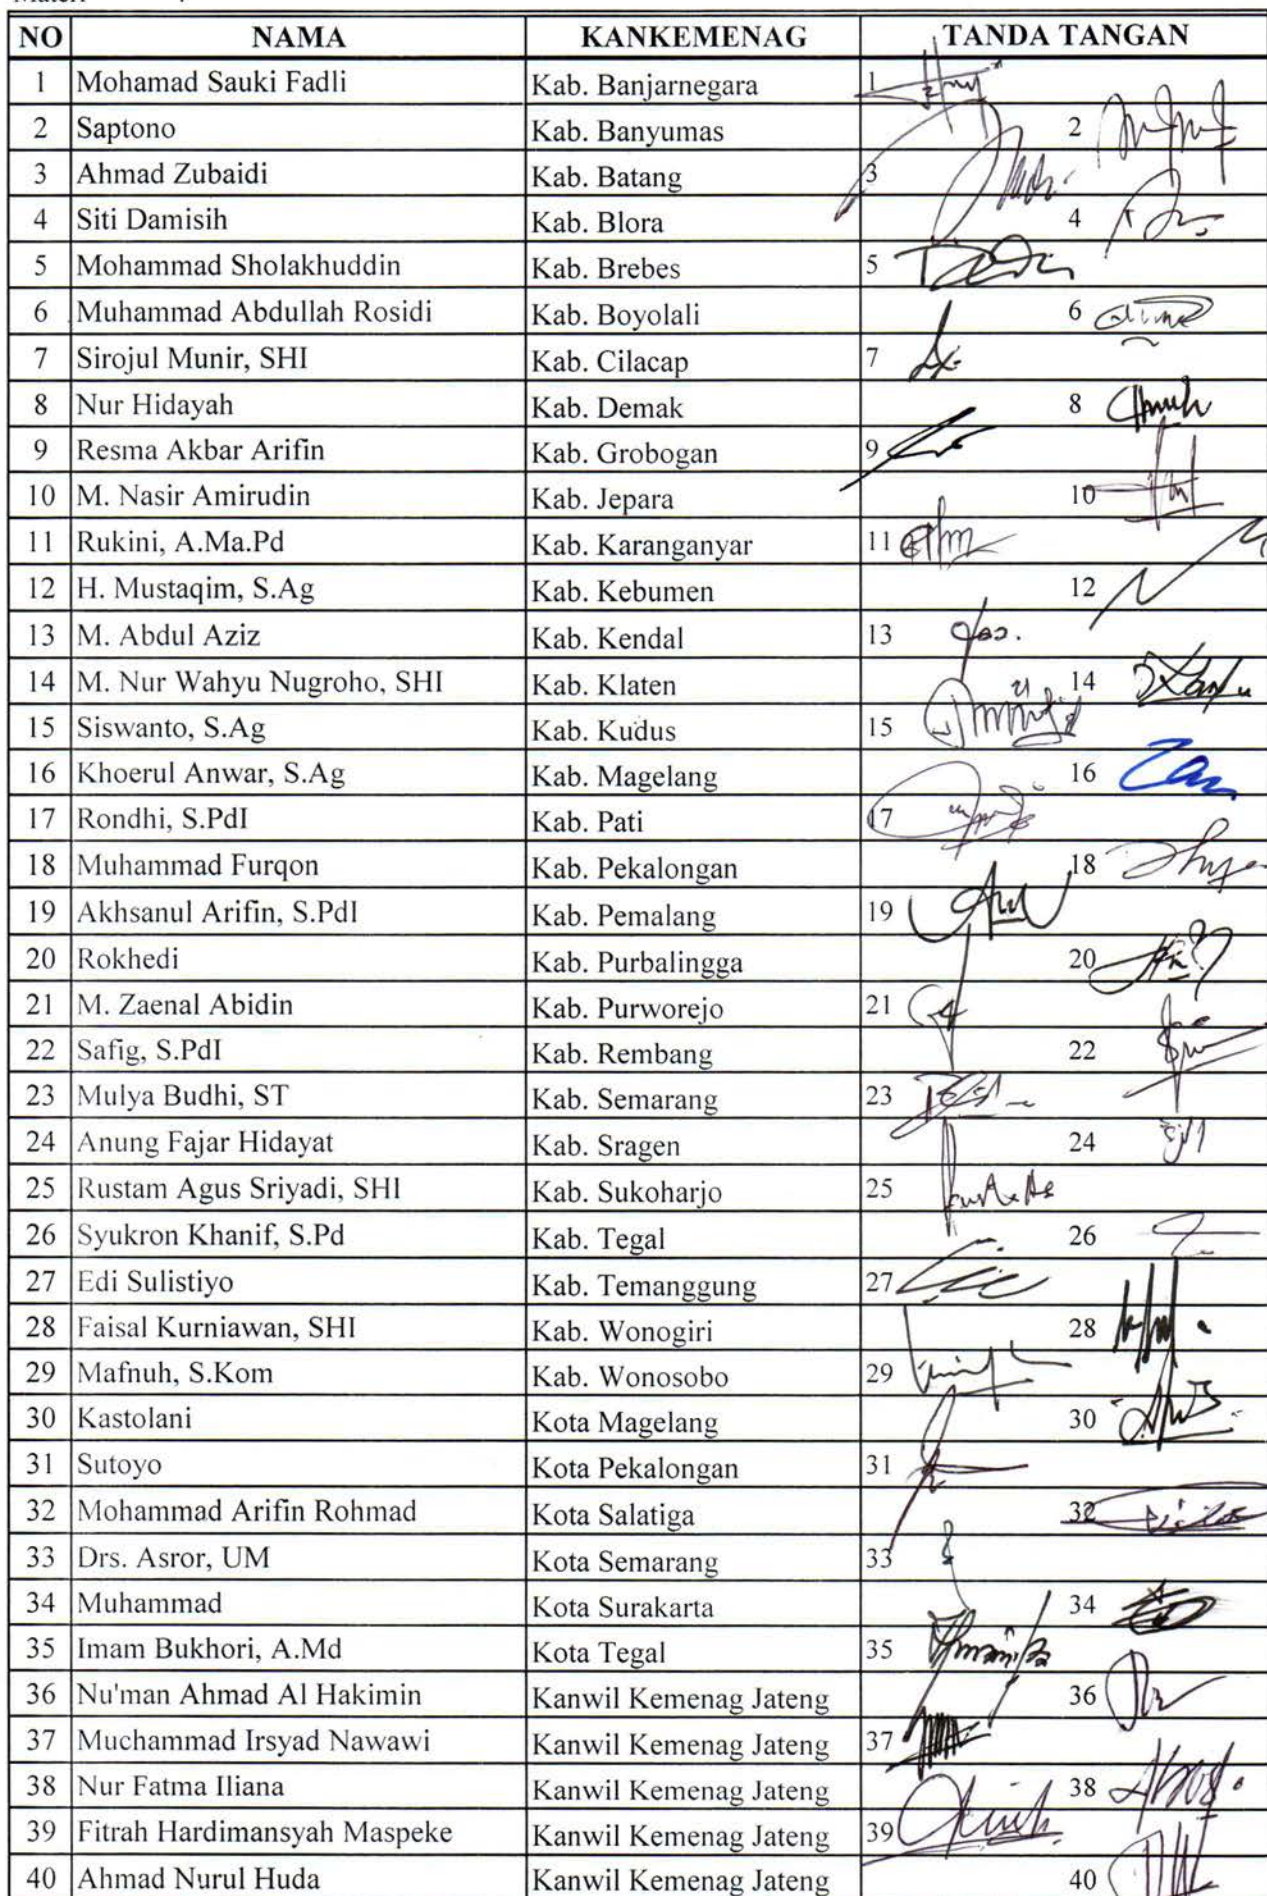 NO NAMA KANKEMENAG TANDA TANGAN
1 Mohamad Sauki Fadli Kab. Banjarnegara 1
2 Saptono Kab. Banyumas 2
3 Ahmad Zubaidi Kab. Batang 3
4 Siti Damisih Kab. Blora 4
5 Mohammad Sholakhuddin Kab. Brebes 5
6 Muhammad Abdullah Rosidi Kab. Boyolali 6
7 Sirojul Munir, SHI Kab. Cilacap 7
8 Nur Hidayah Kab. Demak 8
9 Resma Akbar Arifin Kab. Grobogan 9
10 M. Nasir Amirudin Kab. Jepara 10
11 Rukini, A.Ma.Pd Kab. Karanganyar 11
12 H. Mustaqim, S.Ag Kab. Kebumen 12
13 M. Abdul Aziz Kab. Kendal 13
14 M. Nur Wahyu Nugroho, SHI Kab. Klaten 14
15 Siswanto, S.Ag Kab. Kudus 15
16 Khoerul Anwar, S.Ag Kab. Magelang 16
17 Rondhi, S.PdI Kab. Pati 17
18 Muhammad Furqon Kab. Pekalongan 18
19 Akhsanul Arifin, S.PdI Kab. Pemalang 19
20 Rokhedi Kab. Purbalingga 20
21 M. Zaenal Abidin Kab. Purworejo 21
22 Safig, S.PdI Kab. Rembang 22
23 Mulya Budhi, ST Kab. Semarang 23
24 Anung Fajar Hidayat Kab. Sragen 24
25 Rustam Agus Sriyadi, SHI Kab. Sukoharjo 25
26 Syukron Khanif, S.Pd Kab. Tegal 26
27 Edi Sulistiyo Kab. Temanggung 27
28 Faisal Kurniawan, SHI Kab. Wonogiri 28
29 Mafnuh, S.Kom Kab. Wonosobo 29
30 Kastolani Kota Magelang 30
31 Sutoyo Kota Pekalongan 31
32 Mohammad Arifin Rohmad Kota Salatiga 32
33 Drs. Asror, UM Kota Semarang 33
34 Muhammad Kota Surakarta 34
35 Imam Bukhori, A.Md Kota Tegal 35
36 Nu'man Ahmad Al Hakimin Kanwil Kemenag Jateng 36
37 Muchammad Irsyad Nawawi Kanwil Kemenag Jateng 37
38 Nur Fatma Iliana Kanwil Kemenag Jateng 38
39 Fitrah Hardimansyah Maspeke Kanwil Kemenag Jateng 39
40 Ahmad Nurul Huda Kanwil Kemenag Jateng 40